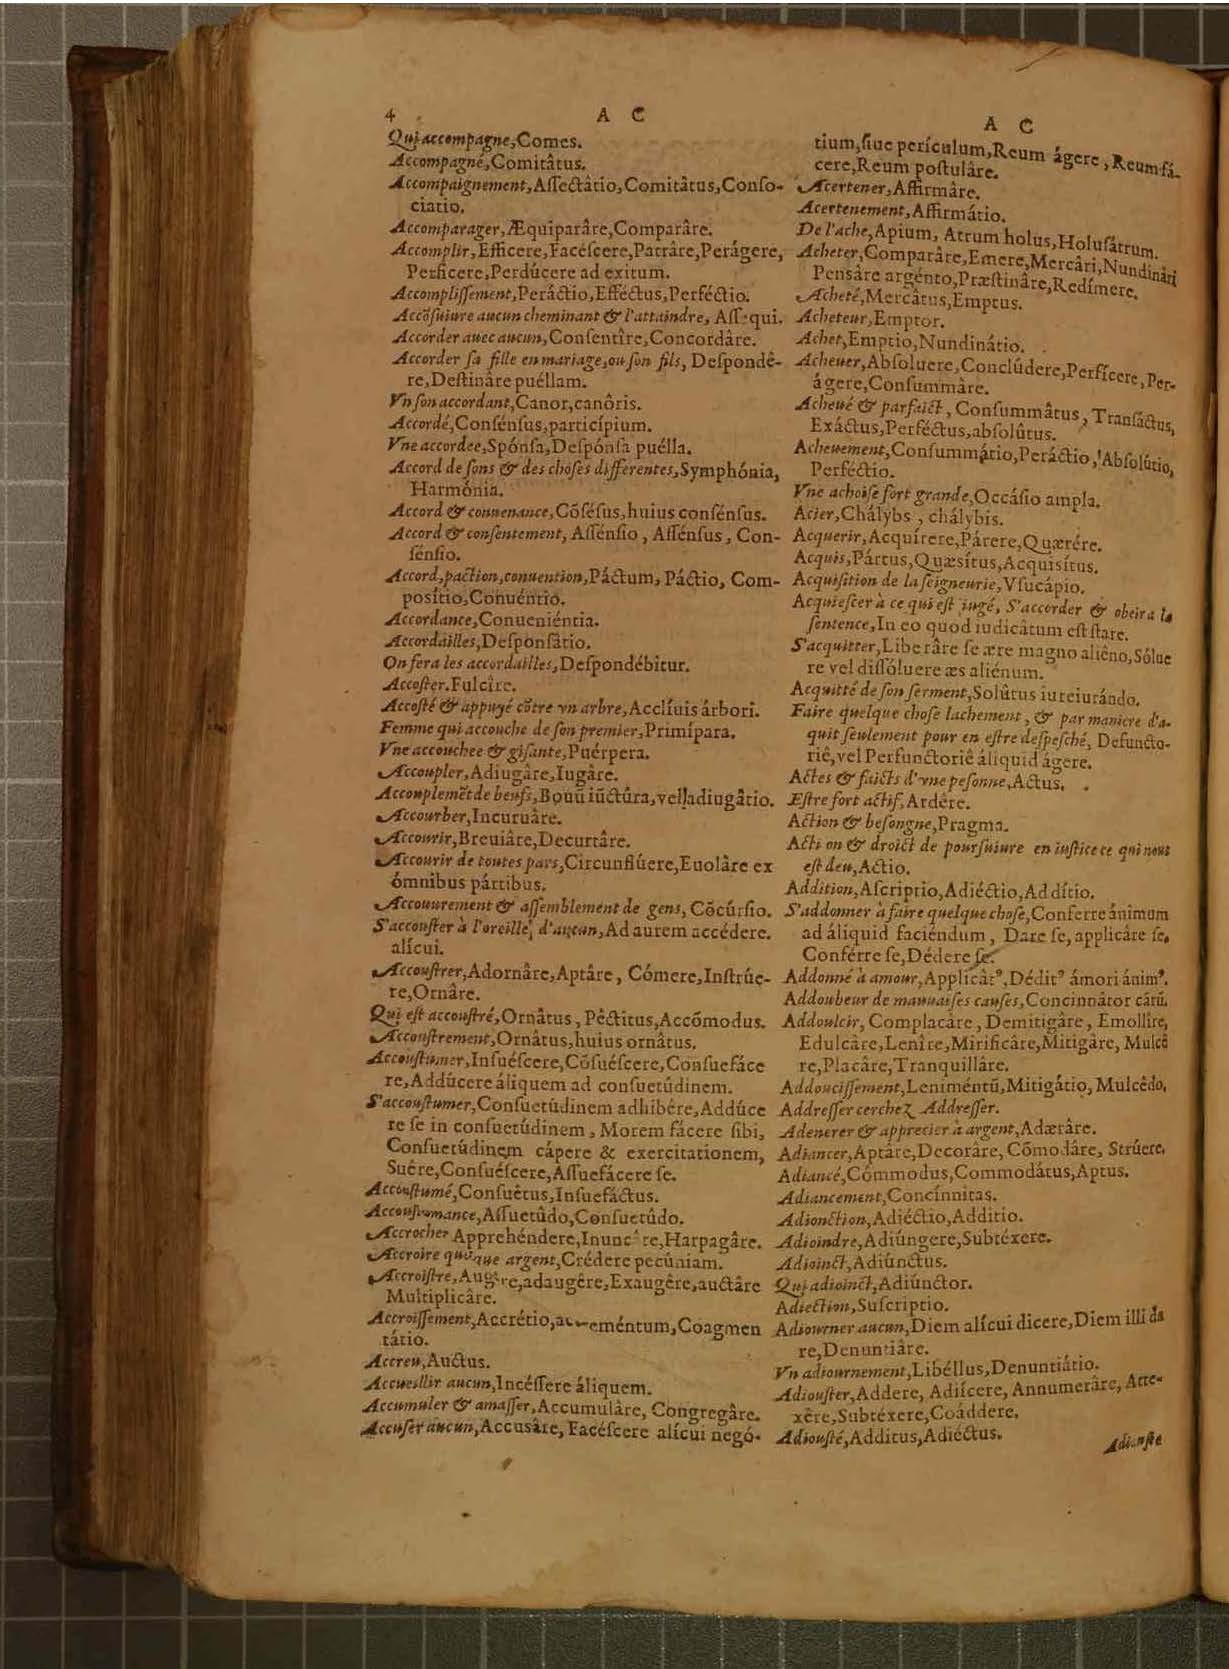 4 A C
Qui accompagne,Comes.
Accompagné,Comitâtus.
Accompaignement,Aſſectâtio,Comitâtus,Conſo-
ciatio.
Accomparager,Æquiparâre,Comparâre.
Accomplir,Efficere,Facéſcere,Patrâre,Perágere,
Perficere,Perdúcere ad exitum.
Accompliſſement,Peráctio,Efféctus,Perféctio.
Accõſuiure aucun cheminant & l'attaindre, Aſſequi.
Accorder auec aucun,Conſentîre,Concordâre.
Accorder ſa fille en mariage,ou ſon fils, Deſpondê-
re,Deſtinâre puéllam.
Vn ſon accordant,Canor,canôris.
Accordé,Conſénſus,particípium.
Vne accordee,Spónſa,Deſpónſa puélla.
Accord de ſons & des choſes differentes,Symphónia,
Harmónia.
Accord & conuenance,Cõſéſus,huius conſénſus.
Accord & conſentement, Aſſénſio , Aſſénſus , Con-
ſénſio.
Accord,paction,conuention,Páctum, Páctio, Com-
poſítio,Conuéntio.
Accordance,Conueniéntia.
Accordailles,Deſponſâtio.
On fera les accordailles,Deſpondébitur.
Accoſter.Fulcîre.
Accoſté & appuyé cõtre vn arbre,Acclíuis árbori.
Femme qui accouche de ſon premier,Primípara.
Vne accouchee & giſante,Puérpera.
Accoupler,Adiugâre,Iugâre.
Accouplemẽt de beufs,Boũũ iũctûra,vel adiugâtio.
Accourber,Incuruâre.
Accourir,Breuiâre,Decurtâre.
Accourir de toutes pars,Circunflúere,Euolâre ex
ómnibus pártibus.
Accouurement & aſſemblement de gens, Cõcúrſio.
S'accouſter à l'oreille d'aucun,Ad aurem accédere.
alícui.
Accouſtrer,Adornâre,Aptâre, Cómere,Inſtrúe-
re,Ornâre.
Qui eſt accouſtré,Ornâtus, Pêctitus,Accõmodus.
Accouſtrement,Ornâtus,huius ornâtus.
Accouſtumer,Inſuéſcere,Cõſuéſcere,Conſuefáce
re,Addúcere áliquem ad conſuetúdinem.
S'accouſtumer,Conſuetúdinem adhibêre,Addúce
re ſe in conſuetúdinem , Morem fácere ſibi,
Conſuetúdinem cápere & exercitationem,
Suêre,Conſuéſcere,Aſſuefácere ſe.
Accouſtumé,Conſuêtus,Inſuefáctus.
Accouſtumance,Aſſuetûdo,Conſuetûdo.
Accrocher Apprehéndere,Harpagâre.
Accroire argent,Crédere pecûniam.
Accroiſtre,adaugêre,Exaugêre,auctâre
Multiplicâre.
Accroiſſement,Accrétio,Coagmen
tátio.
Accreu,Auctus.
Accueillir aucun,Incéſſere áliquem.
Accumuler & amaſſer,Accumulâre, Congregâre.
Accuſer aucun,Accusâre, Facéſcere alícui negó-
A C
tium,ſiue perículum,Reum ágere, Reum fá-
cere,Reum poſtulâre.
Acertener,Affirmâre.
Acertenement,Affirmátio.
De l'ache,Apium, Atrum holus,Holuſátrum.
Acheter,Comparâre,Emere,Mercâri,Nundinâri
Penſâre argénto,Præſtinâre,Redímere.
Acheté,Mercâtus,Emptus.
Acheteur,Emptor.
Achet,Emptio,Nundinátio.
Acheuer,Abſoluere,Conclúdere,Perfícere,Per-
ágere,Conſummâre.
Acheué & parfaict, Conſummâtus, Tranſáctus,
Exáctus,Perféctus,abſolûtus.
Acheuement,Conſummátio,Peráctio,Abſolútio,
Perféctio.
Vne achoiſe fort grande,Occáſio ampla.
Acier,Chálybs , chálybis.
Acquerir,Acquírere,Párere,Quærére.
Acquis,Pártus,Quæsítus,Acquisítus.
Acquiſition de la ſeigneurie,Vſucápio.
Acquieſcer à ce qui eſt iugé, S'accorder & obeir a la
ſentence,In eo quod iudicâtum eſt ſtare.
S'acquitter,Liberâre ſe ære magno aliêno,Sólue
re vel diſſóluere æs aliénum.
Acquitté de ſon ſerment,Solûtus iureiurándo.
Faire quelque choſe lachement, & par maniere d'a-
quit ſeulement pour en eſtre deſpeſché, Defuncto-
riê,vel Perfunctoriê áliquid ágere.
Actes & faicts d'vne peſonne,Actus.
Eſtre fort actif,Ardêre.
Action & beſongne,Pragma.
Acti on & droict de pourſuiure en iuſtice ce qui nous
eſt deu,Actio.
Addition,Aſcriptio,Adiéctio,Addítio.
S'addonner à faire quelque choſe,Conferre ánimum
ad áliquid faciéndum, Dare ſe, applicâre ſe,
Conférre ſe,Dédere ſe.
Addonné à amour,Applicâtꝰ,Déditꝰ ámori ánimꝰ.
Addoubeur de mauuaiſes cauſes,Concinnâtor cárũ.
Addoulcir, Complacâre, Demitigâre, Emollîre,
Edulcâre,Lenîre,Mirificâre,Mitigâre, Mulcê
re,Placâre,Tranquillâre.
Addouciſſement,Leniméntũ,Mitigátio, Mulcêdo,
Addreſſer cerchez Addreſſer.
Adenerer & apprecier à argent,Adærâre.
Adiancer,Aptâre,Decorâre, Cõmodâre, Strúere,
Adiancé,Cómmodus,Commodátus,Aptus.
Adiancement,Concínnitas.
Adionction,Adiéctio,Additio.
Adioindre,Adiúngere,Subtéxere.
Adioinct,Adiúnctus.
Qui adioinct,Adiúnctor.
Adiection,Suſcriptio.
Adiourner aucun,Diem alícui dicere,Diem illi da
re,Denuntiâre.
Vn adiournement,Libéllus,Denuntiátio.
Adiouſter,Addere, Adiícere, Annumerâre, Atte-
xêre,Subtéxere,Coáddere.
Adiouſté,Additus,Adiéctus.
Adiouſté